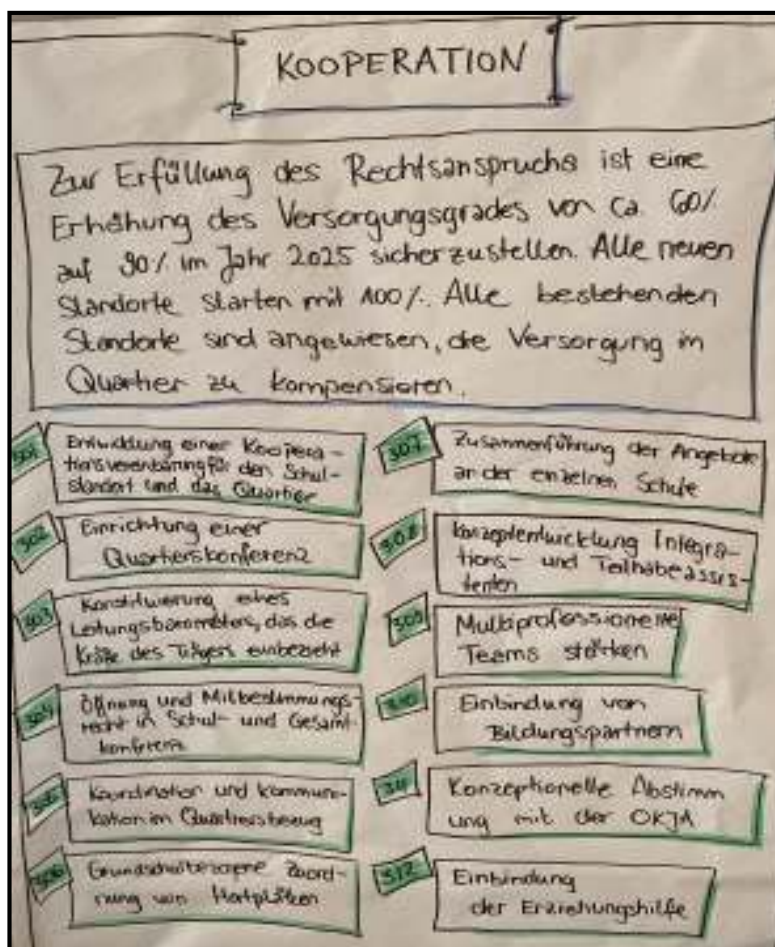 KOOPERATION
Zur Erfüllung des Rechtsanspruchs ist eine
Erhöhung des Versorgungsgrades von ca. 60%
auf 90% im Jahr 2025 sicherzustellen. Alle neuen
Standorte starten mit 100%. Alle bestehenden
Standorte sind angewiesen, die Versorgung im
Quartier zu kompensieren.
301
Entwicklung einer Koopera-
tionsvereinbarung für den Schul-
standort und das Quartier
302
Einrichtung einer
Quartierskonferenz
303
Konstituierung eines
Leitungsbarometers, das die
Kräfte des Trägers einbezieht
304
Öffnung und Mitbestimmungs-
recht in Schul- und Gesamt-
konferenz
305
Koordination und Kommuni-
kation im Quartiersbezug
306
Grundschulbezogene Zuord-
nung von Hortplätzen
307
Zusammenführung der Angebote
an der einzelnen Schule
308
Konzeptentwicklung Integra-
tions- und Teilhabeassis-
tenten
309
Multiprofessionelle
Teams stärken
310
Einbindung von
Bildungspartnern
311
Konzeptionelle Abstimm
ung mit der OKJA
312
Einbindung
der Erziehungshilfe